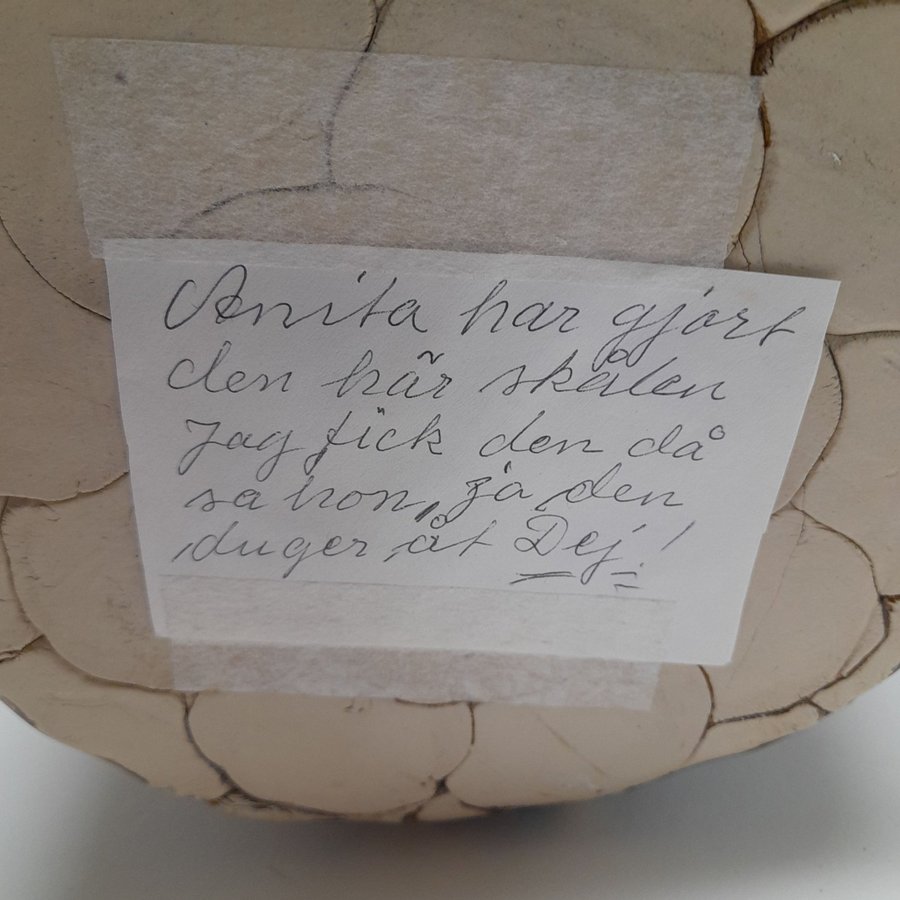 Anita har gjort
den här skålen
Jag fick den då
sa hon, ja den
duger åt Dej!